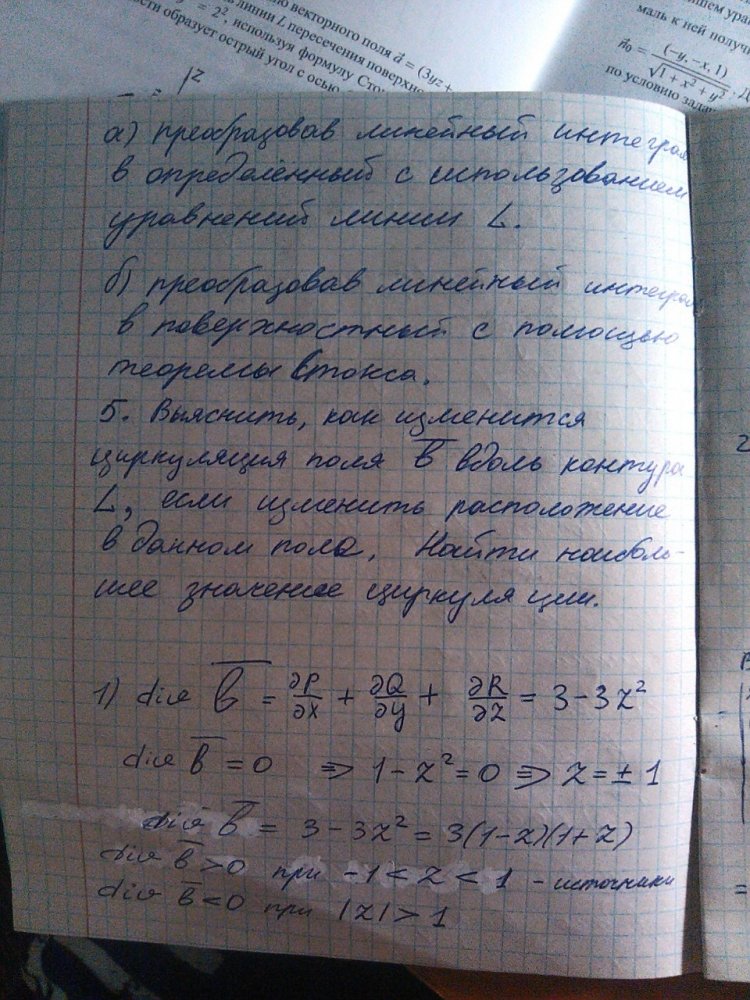 векторного поля a⃗ = (3yz +
линии L пересечения поверхно
= 2², используя формулу Сто
образует острый угол с осью
z
маль к ней получи
n⃗₀ = (-y, -x, 1) / √1 + x² + y²
по условию зада
а) преобразовав линейный интеграл
в определённый с использованием
уравнений линии L.
б) преобразовав линейный интеграл
в поверхностный с помощью
теоремы Стокса.
5. Выяснить, как изменится
циркуляция поля b̅ вдоль контура
L, если изменить расположение
в данном поле. Найти наиболь-
шее значение циркуляции.
1) div b̅ = ∂P/∂x + ∂Q/∂y + ∂R/∂z = 3 - 3z²
div b̅ = 0 ⇒ 1 - z² = 0 ⇒ z = ± 1
div b̅ = 3 - 3z² = 3(1-z)(1+z)
div b̅ > 0 при -1 < z < 1 - источники
div b̅ < 0 при |z| > 1